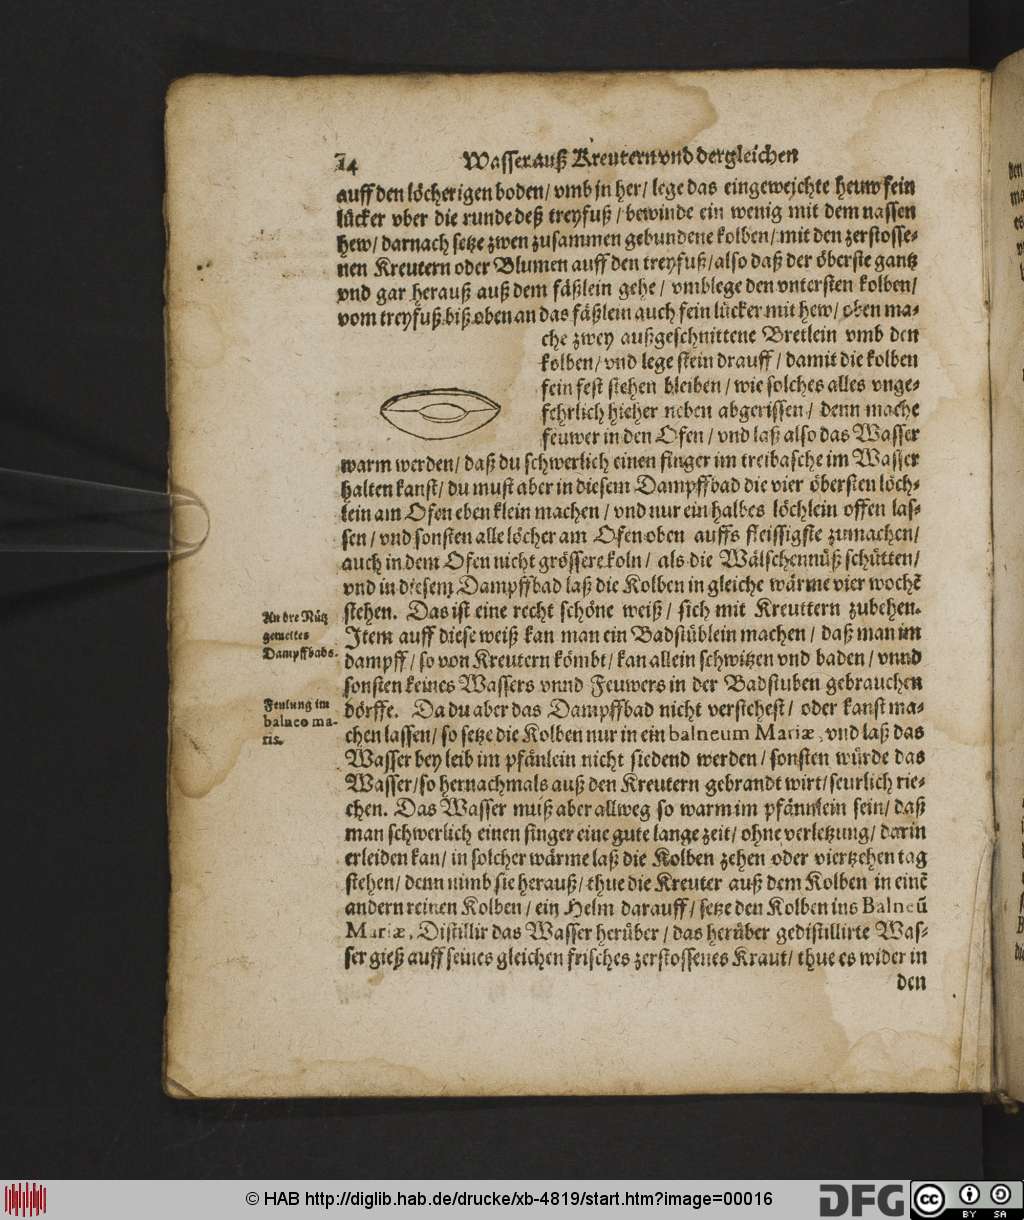 14 Wasser auß Kreutern vnd dergleichen
auff den löcherigen boden / vmb jn her / lege das eingeweichte heuw fein
lücker vber die runde deß treyfuß / bewinde ein wenig mit dem nassen
hew / darnach setze zwen zusammen gebundene kolben / mit den zerstosse-
nen Kreutern oder Blumen auff den treyfuß / also daß der öberste gantz
vnd gar herauß auß dem fäßlein gehe / vmblege den vntersten kolben /
vom treyfuß biß oben an das fäßlein auch fein lücker mit hew / oben ma-
che zwey außgeschnittene Bretlein vmb den
kolben / vnd lege stein drauff / damit die kolben
fein fest stehen bleiben / wie solches alles vnge-
fehrlich hieher neben abgerissen / denn mache
feuwer in den Ofen / vnd laß also das Wasser
warm werden / daß du schwerlich einen finger im treibasche im Wasser
halten kanst / du must aber in diesem Dampffbad die vier öbersten löch-
lein am Ofen eben klein machen / vnd nur ein halbes löchlein offen las-
sen / vnd sonsten alle löcher am Ofen oben auffs fleissigste zumachen /
auch in dem Ofen nicht grössere koln / als die Wälschennüß schütten /
vnd in diesem Dampffbad laß die Kolben in gleiche wärme vier wochẽ
stehen. Das ist eine recht schöne weiß / sich mit Kreuttern zubehen.
Item auff diese weiß kan man ein Badstüblein machen / daß man im
dampff / so von Kreutern kömbt / kan allein schwitzen vnd baden / vnnd
sonsten keines Wassers vnnd Feuwers in der Badstuben gebrauchen
dörffe. Da du aber das Dampffbad nicht verstehest / oder kanst ma-
chen lassen / so setze die Kolben nur in ein balneum Mariæ, vnd laß das
Wasser bey leib im pfänlein nicht siedend werden / sonsten würde das
Wasser / so hernachmals auß den Kreutern gebrandt wirt / seurlich rie-
chen. Das Wasser muß aber allweg so warm im pfännlein sein / daß
man schwerlich einen finger eine gute lange zeit / ohne verletzung / darin
erleiden kan / in solcher wärme laß die Kolben zehen oder viertzehen tag
stehen / denn nimb sie herauß / thue die Kreuter auß dem Kolben in einẽ
andern reinen Kolben / ein Helm darauff / setze den Kolben ins Balneũ
Mariæ, Distillir das Wasser herüber / das herüber gedistillirte Was-
ser gieß auff seines gleichen frisches zerstossenes Kraut / thue es wider in
den
An dre Nütz
gemeltes
Dampffbads.
Feulung im
balneo ma-
ris.
© HAB http://diglib.hab.de/drucke/xb-4819/start.htm?image=00016
DFG
cc BY SA